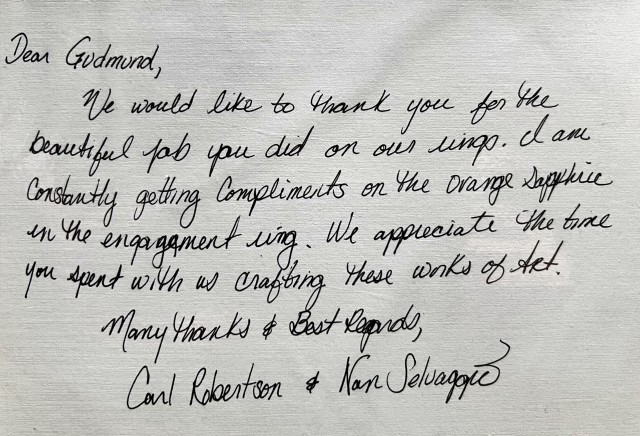 Dear Gudmund,
We would like to thank you for the
beautiful job you did on our rings. I am
Constantly getting Compliments on the Orange Sapphire
in the engagement ring. We appreciate the time
you spent with us crafting these works of Art.
Many thanks & Best Regards,
Carl Robertson & Nan Selvaggio